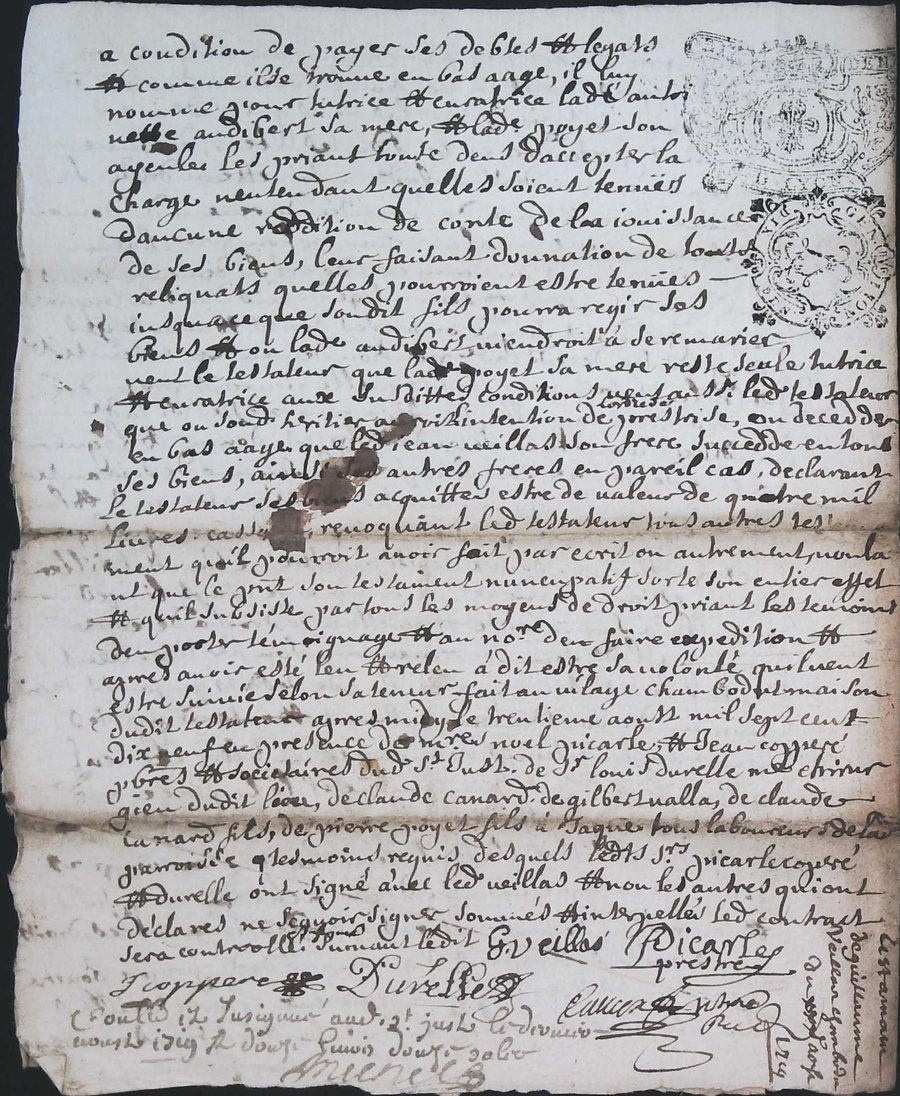 a condition de payer ses debtes et legats
et comme il se trouve en bas aage, il luy
nomme pour tutrice et curatrice lade antoi
nette audibert sa mere, et lade poyet son
ayeule les priant toute deus d'accepter la
charge nentendant quelles soient tenües
daucune reddition de conte de la iouissance
de ses biens, leur faisant donnation de touts
reliquats quelles pourroient estre tenües
iusquaceque sondit fils pourra regir ses
biens et ou lade audibert viendroit à se remarier
veut le testateur que lade poyet sa mere reste seule tutrice
et curatrice aux susdittes conditions veut aussi led testateur
que ou sond heritier intention de prestrise, ou decedde
en bas aage que led jean veillas son frere succedde en tous
ses biens, autres freres en pareil cas, declarant
le testateur ses biens acquittes estre de valeur de quatre mil
livres, revoquant led testateur tous autres tes
ment qu'il pourroit avoir fait par ecrit ou autrement, voula
nt que le pnt son testament nuncupatif sorte son entier effet
et quil subsiste par tous les moyens de droit priant les temoins
den porter témoignage et au nore den faire expedition et
apres avoir esté leu et releu à dit estre sa volonté quil veut
estre suivie selon sa teneur fait au vilage Chambodut maison
dudit testateur apres midy le trentieme aoust mil sept cent
dix neuf en presence de mres noel picarle et Jean copperé
pbres et societaires dud St Just. de Sr louis durelle me chirur
gien dudit lieu, de claude canard de gilbert valla, de claude
canard fils, de pierre poyet fils à Jaque tous laboureurs de la
parroisse tesmoins requis desquels ledts srs picarle coperé
et durelle ont signé avec led veillas et non les autres qui ont
déclares ne sçavoir signer sommés et interpellés led contract
sera controllé suivant l'edit G Veillas Picarle
prestre
J coppere Durelle
Conllé et Insigné aud. St just le
aoust 1719
Testament
de guillaume
veillas chambodu
du
1719